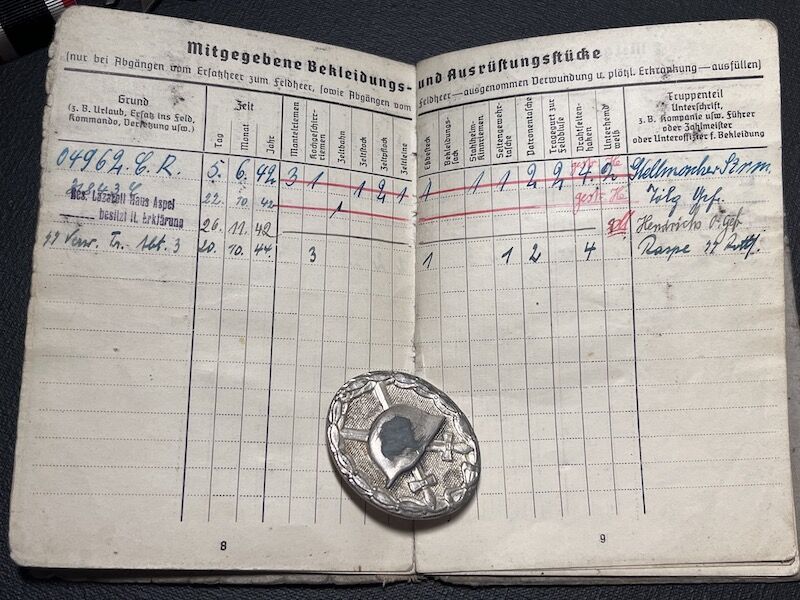 Mitgegebene Bekleidungs- und Ausrüstungsstücke
(nur bei Abgängen vom Ersatzheer zum Feldheer, sowie Abgängen vom Feldheer — ausgenommen Verwundung u. plötzl. Erkrankung — ausfüllen)
Grund
(z. B. Urlaub, Ersatz ins Feld,
Kommando, Versetzung usw.)
Zeit
Tag
Monat
Jahr
Mantelriemen
Kochgeschirr-
riemen
Zeltbahn
Zeltstock
Zeltpflock
Zeltleine
Eßbesteck
Bekleidungs-
sack
Stahlhelm-
Kinnriemen
Seitengewehr-
tasche
Patronentasche
Tragegurt zur
Feldbluse
Drahtseiten-
haken
Unterhemd
weiß
Truppenteil
Unterschrift,
z. B. Kompanie usw. Führer
oder Zahlmeister
oder Unteroffizier f. Bekleidung
04962. E. R. 5. 6. 42 3 1 1 2 1 1 1 1 2 2 4 2
22. 10. 42 1
Res. Lazarett Haus Aspel
besitzt lt. Erklärung
26. 11. 42 Hendrichs
Abt. 3 20. 10. 44 3 1 1 2 4 Raspe
8
9